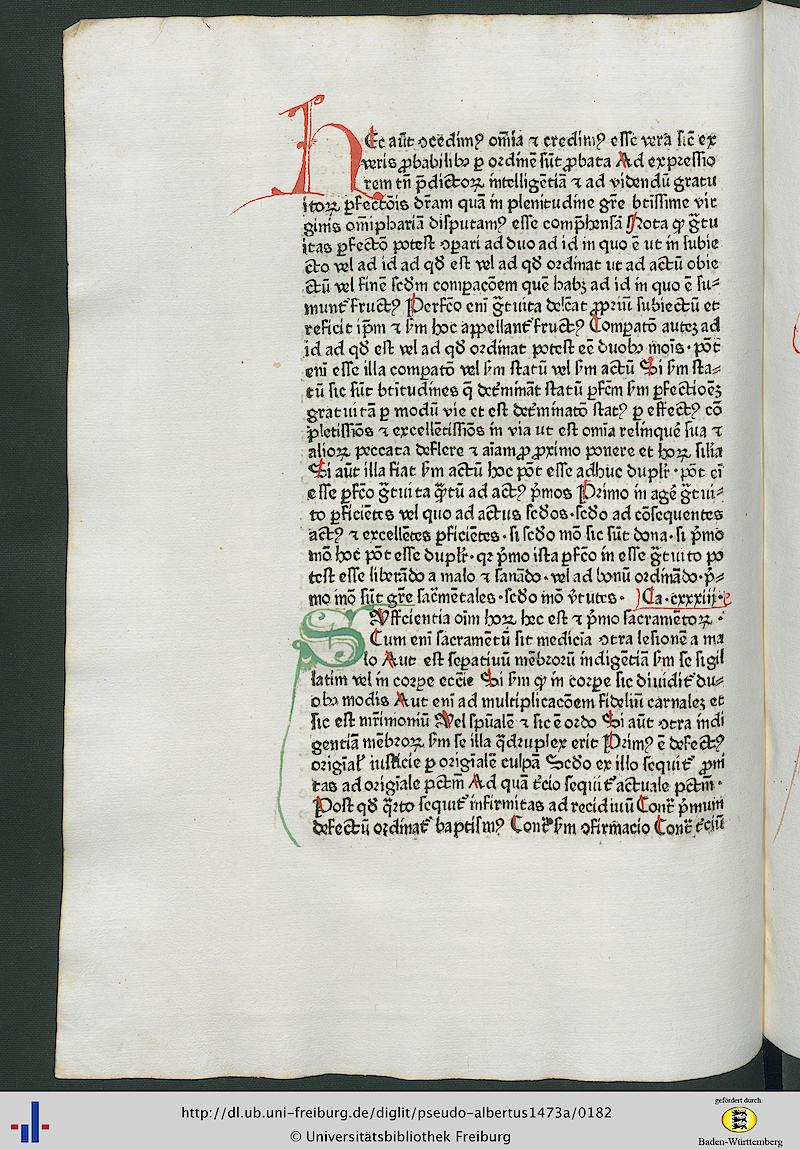 HEc aūt ↄcedimꝰ om̄ia ⁊ credimꝰ esse vera sic̄ ex
veris ꝓbabilibꝫ ꝑ ordinē sūt ꝓbata Ad expressio
rem tn̄ p̄dictoꝝ intelligētiā ⁊ ad videndū gratu
itoꝝ ꝑfectōis dr̄am quā in plenitudine gr̄e bt̄issime vir
ginis om̄ipharia disputamꝰ esse comp̄hensā Nota ꝙ g̃tu
itas ꝑfectō potest ↄpari ad duo ad id in quo ē ut in subie
cto vel ad id ad qḋ est vel ad qḋ ordinat ut ad actū obie
ctū vel finē scḋm compacōem quē habꝫ ad id in quo ē su-
munt᷑ fructꝰ Perfcō eni g̃tuita delcāt ꝓpriū subiectū et
reficit ip̄m ⁊ ẜm hoc appellant᷑ fructꝰ Compatō auteꝫ ad
id ad qḋ est vel ad qḋ ordinat potest eē duobꝫ mōis · pōt
eni esse illa compatō vel ẜm statū vel ẜm actū Si ẜm sta-
tū sic sūt btītudines q̄ det᷑mināt statū ꝑfcm ẜm ꝑfectioēꝫ
gratuitā ꝑ modū vie et est det᷑minatō statꝰ ꝑ effectꝰ cō
pletissiōs ⁊ excellētissiōs in via ut est om̄ia relinquē sua ⁊
alioꝝ peccata deflere ⁊ aīam ꝓ ꝓximo ponere et hoꝝ silia
Si aūt illa fiat ẜm actū hoc pōt esse adhuc dupl̄r · pōt eī
esse ꝑfcō g̃tuita q̃tū ad actꝰ p̄mos Primo in agē g̃tui-
to ꝑficiētes vel quo ad actus scḋos · scḋo ad cōsequentes
actꝰ ⁊ excellētes ꝑficiētes · si scḋo mō sic sūt dona · si p̄mo
mō hoc pōt esse dupl̄r · qꝛ p̄mo ista ꝑfcō in esse g̃tuito po
test esse liberādo a malo ⁊ sanādo · vel ad bonū ordinādo · p̄-
mo mō sūt gr̄e sac̄mētales · scḋo mō v̄tutes · Ca · cxxxiii · c
SVfficientia oīm hoꝝ hec est ⁊ p̄mo sacramētoꝝ ·
Cum eni sacramētū sit medicia ↄtra lesionē a ma
lo Aut est sepatiuū mēbrorū indigētiā ẜm se sigil
latim vel in corpe ecc̄ie Si ẜm ꝙ in corpe sic diuidit᷑ du-
obꝫ modis Aut eni ad multiplicacōem fideliū carnaleꝫ et
sic est mr̄imoniū Vel spūalē ⁊ sic ē ordo Si aūt ↄtra indi
gentiā mēbroꝝ ẜm se illa q̃druplex erit Primꝰ ē defectꝰ
origiāl᷑ iusticie ꝑ origiālē culpā Scḋo ex illo sequit᷑ ꝓni
tas ad origiāle pctm̄ Ad quā t̄cio sequit᷑ actuale pctm̄ ·
Post qḋ q̃rto sequit᷑ infirmitas ad recidiuū Cont᷑ p̄mum
defectū ordinat᷑ baptismꝰ Cont᷑ ẜm ↄfirmacio Cont᷑ t̄ciū
http://dl.ub.uni-freiburg.de/diglit/pseudo-albertus1473a/0182
© Universitätsbibliothek Freiburg
gefördert durch
Baden-Württemberg